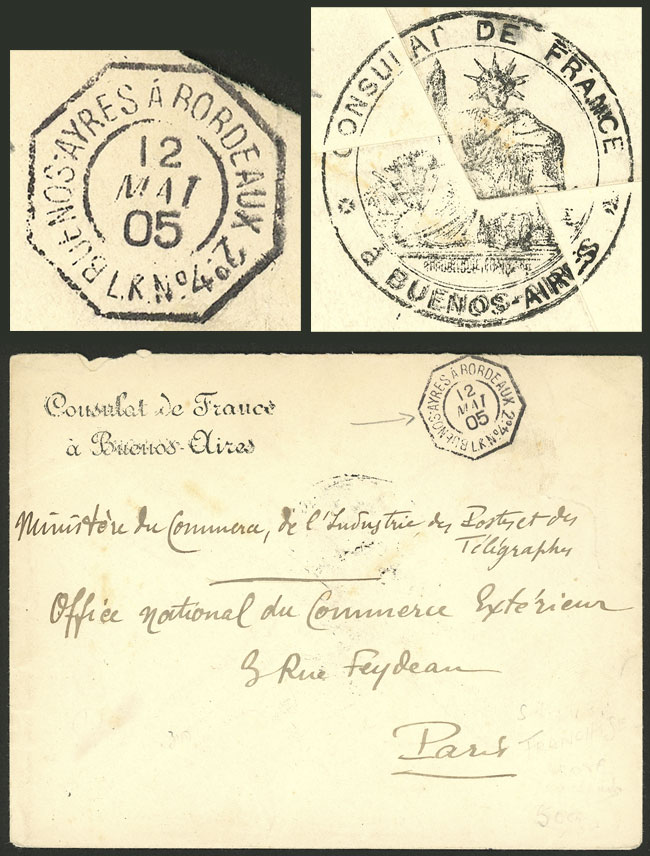 BUENOS-AYRES À BORDEAUX
12
MAI
05
L.K. Nº 4. 2º
CONSULAT DE FRANCE
à BUENOS-AIRES
Consulat de France
à Buenos-Aires
BUENOS-AYRES À BORDEAUX
12
MAI
05
L.K. Nº 4. 2º
Ministère du Commerce, de l'Industrie des Postes et des
Télégraphes
Office national du Commerce Extérieur
3 Rue Feydeau
Paris